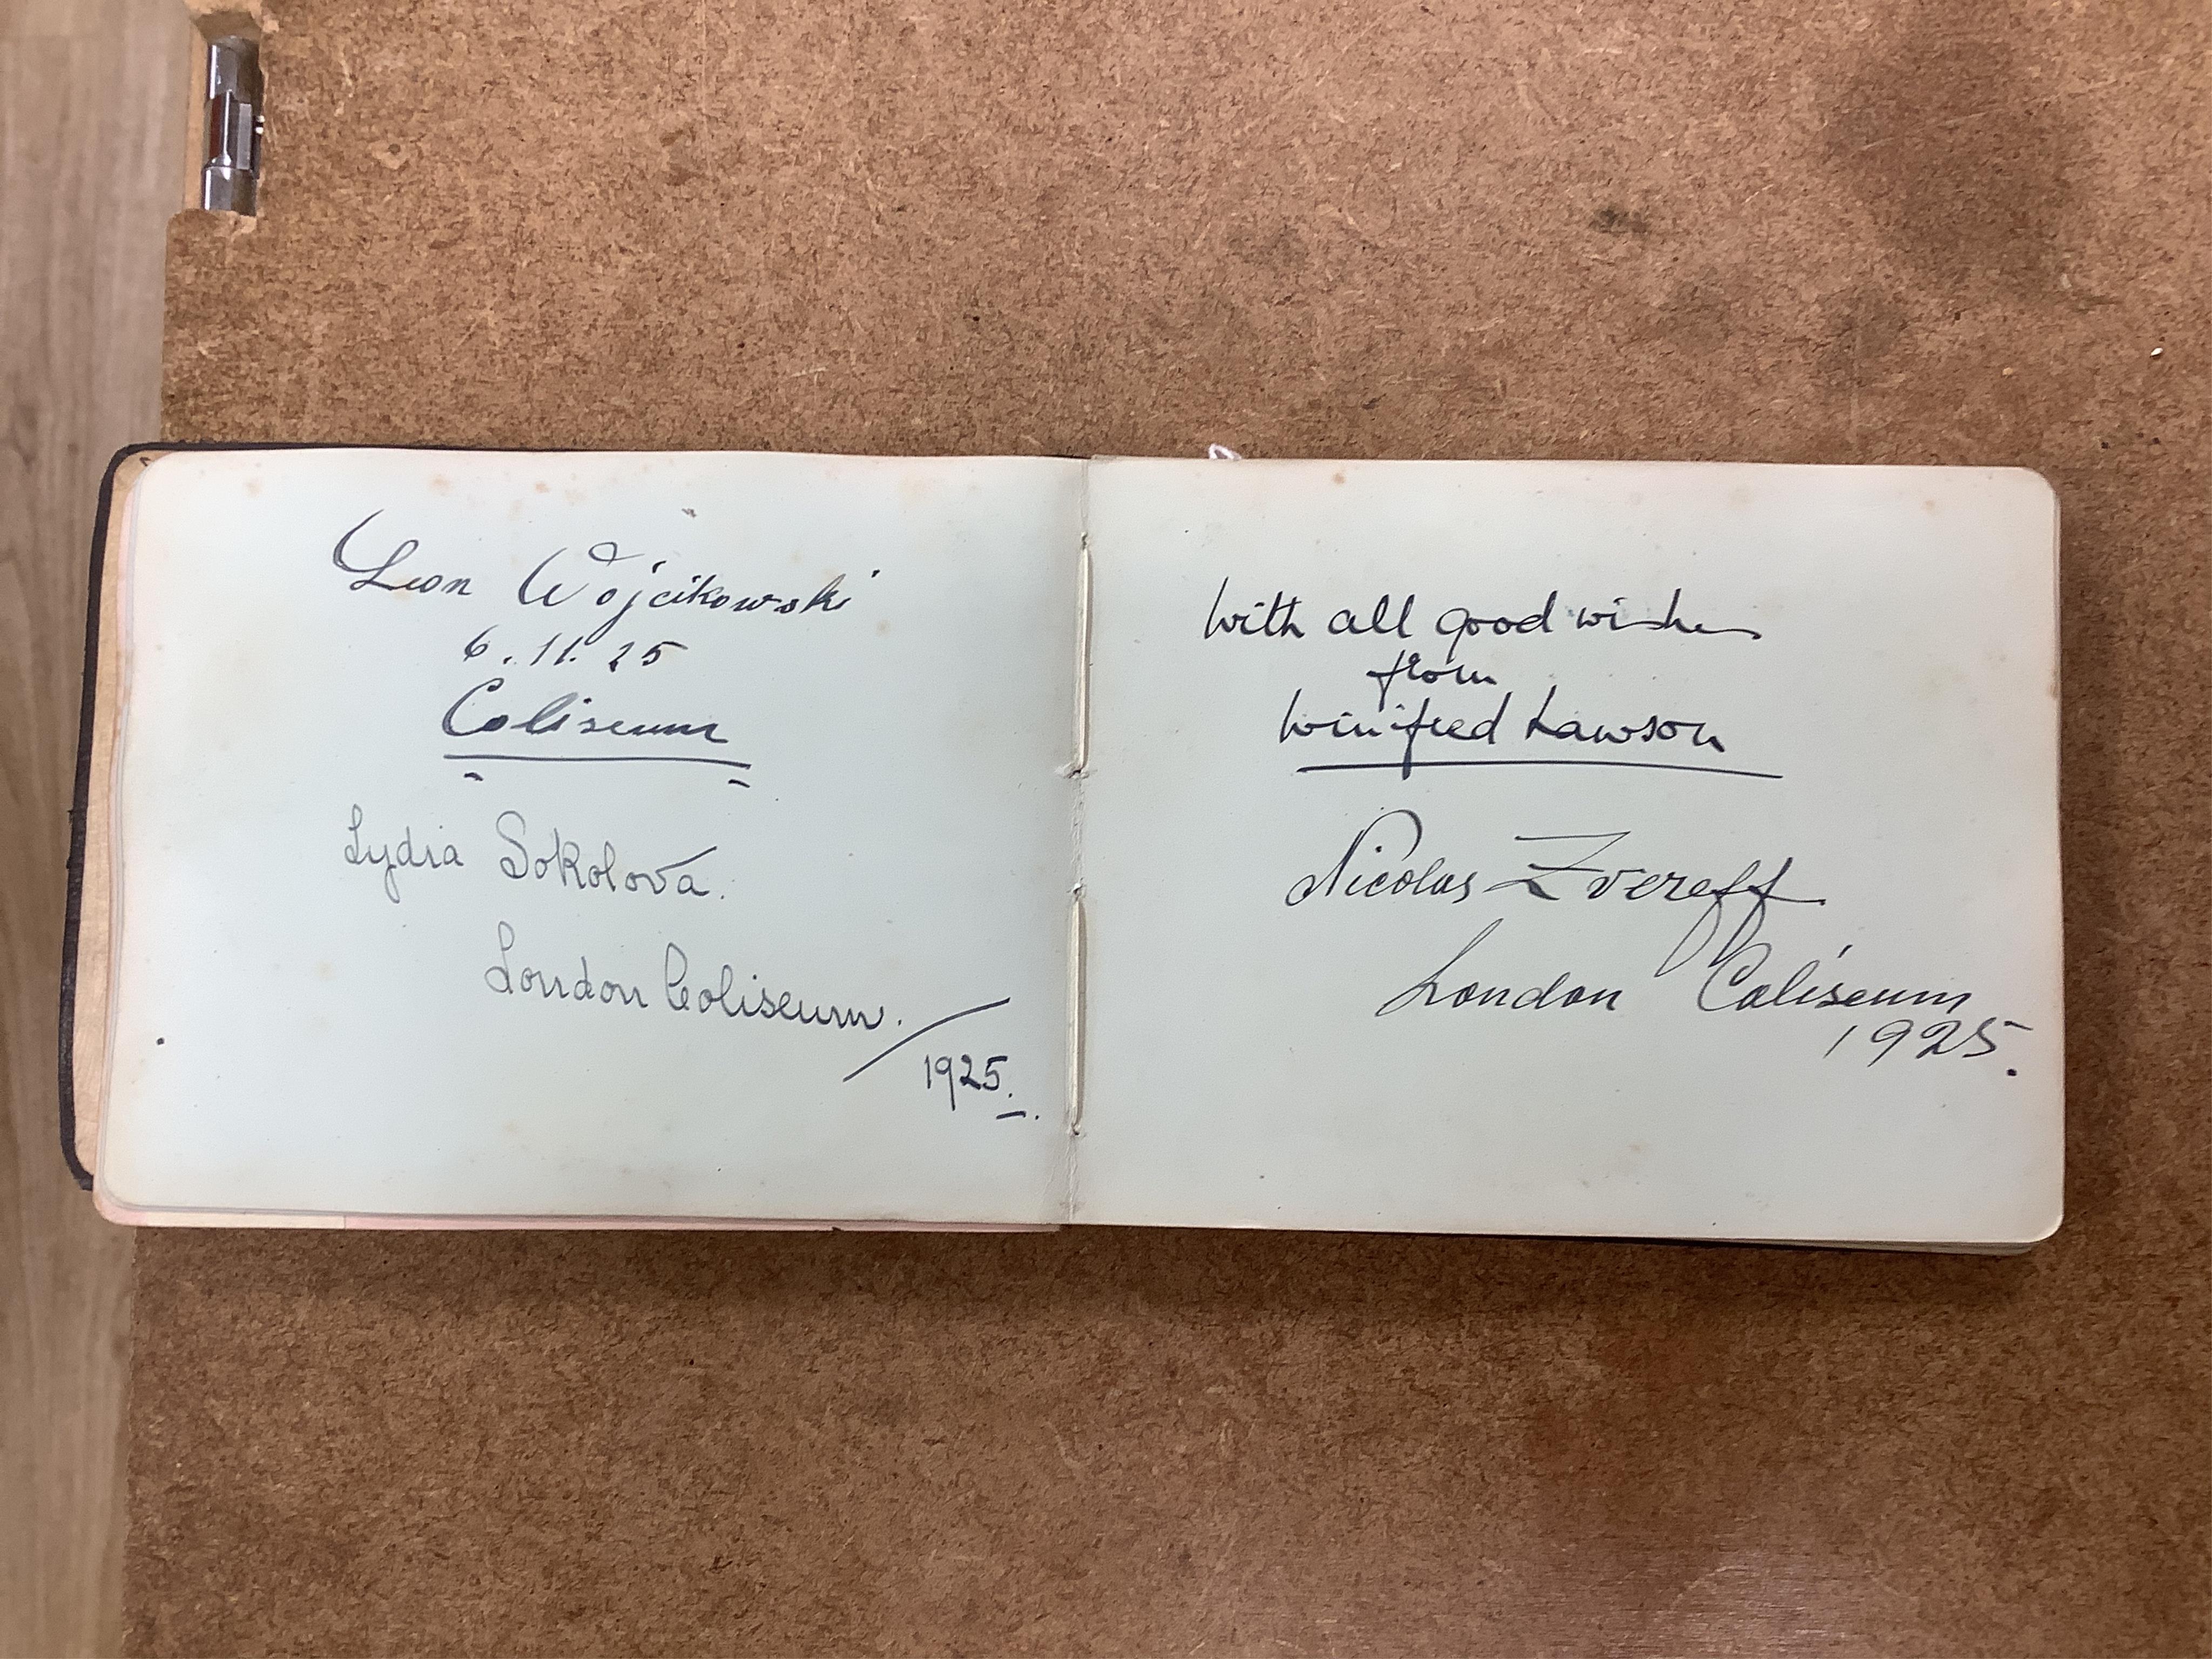 Leon Wojcikowski
6.11.25
Coliseum
Lydia Sokolova.
London Coliseum.
1925.
With all good wishes
from
Winifred Lawson
Nicolas Zvereff
London Coliseum
1925.